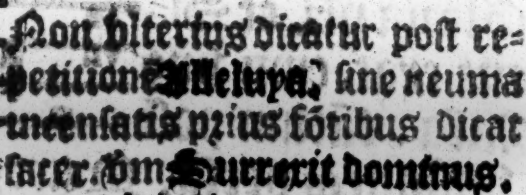 Non vlterius dicatur post re⸗
petitionē Alleluya. sine neuma
incensatis prius fōtibus dicat
sacer. v̄m Surrexit dominus.